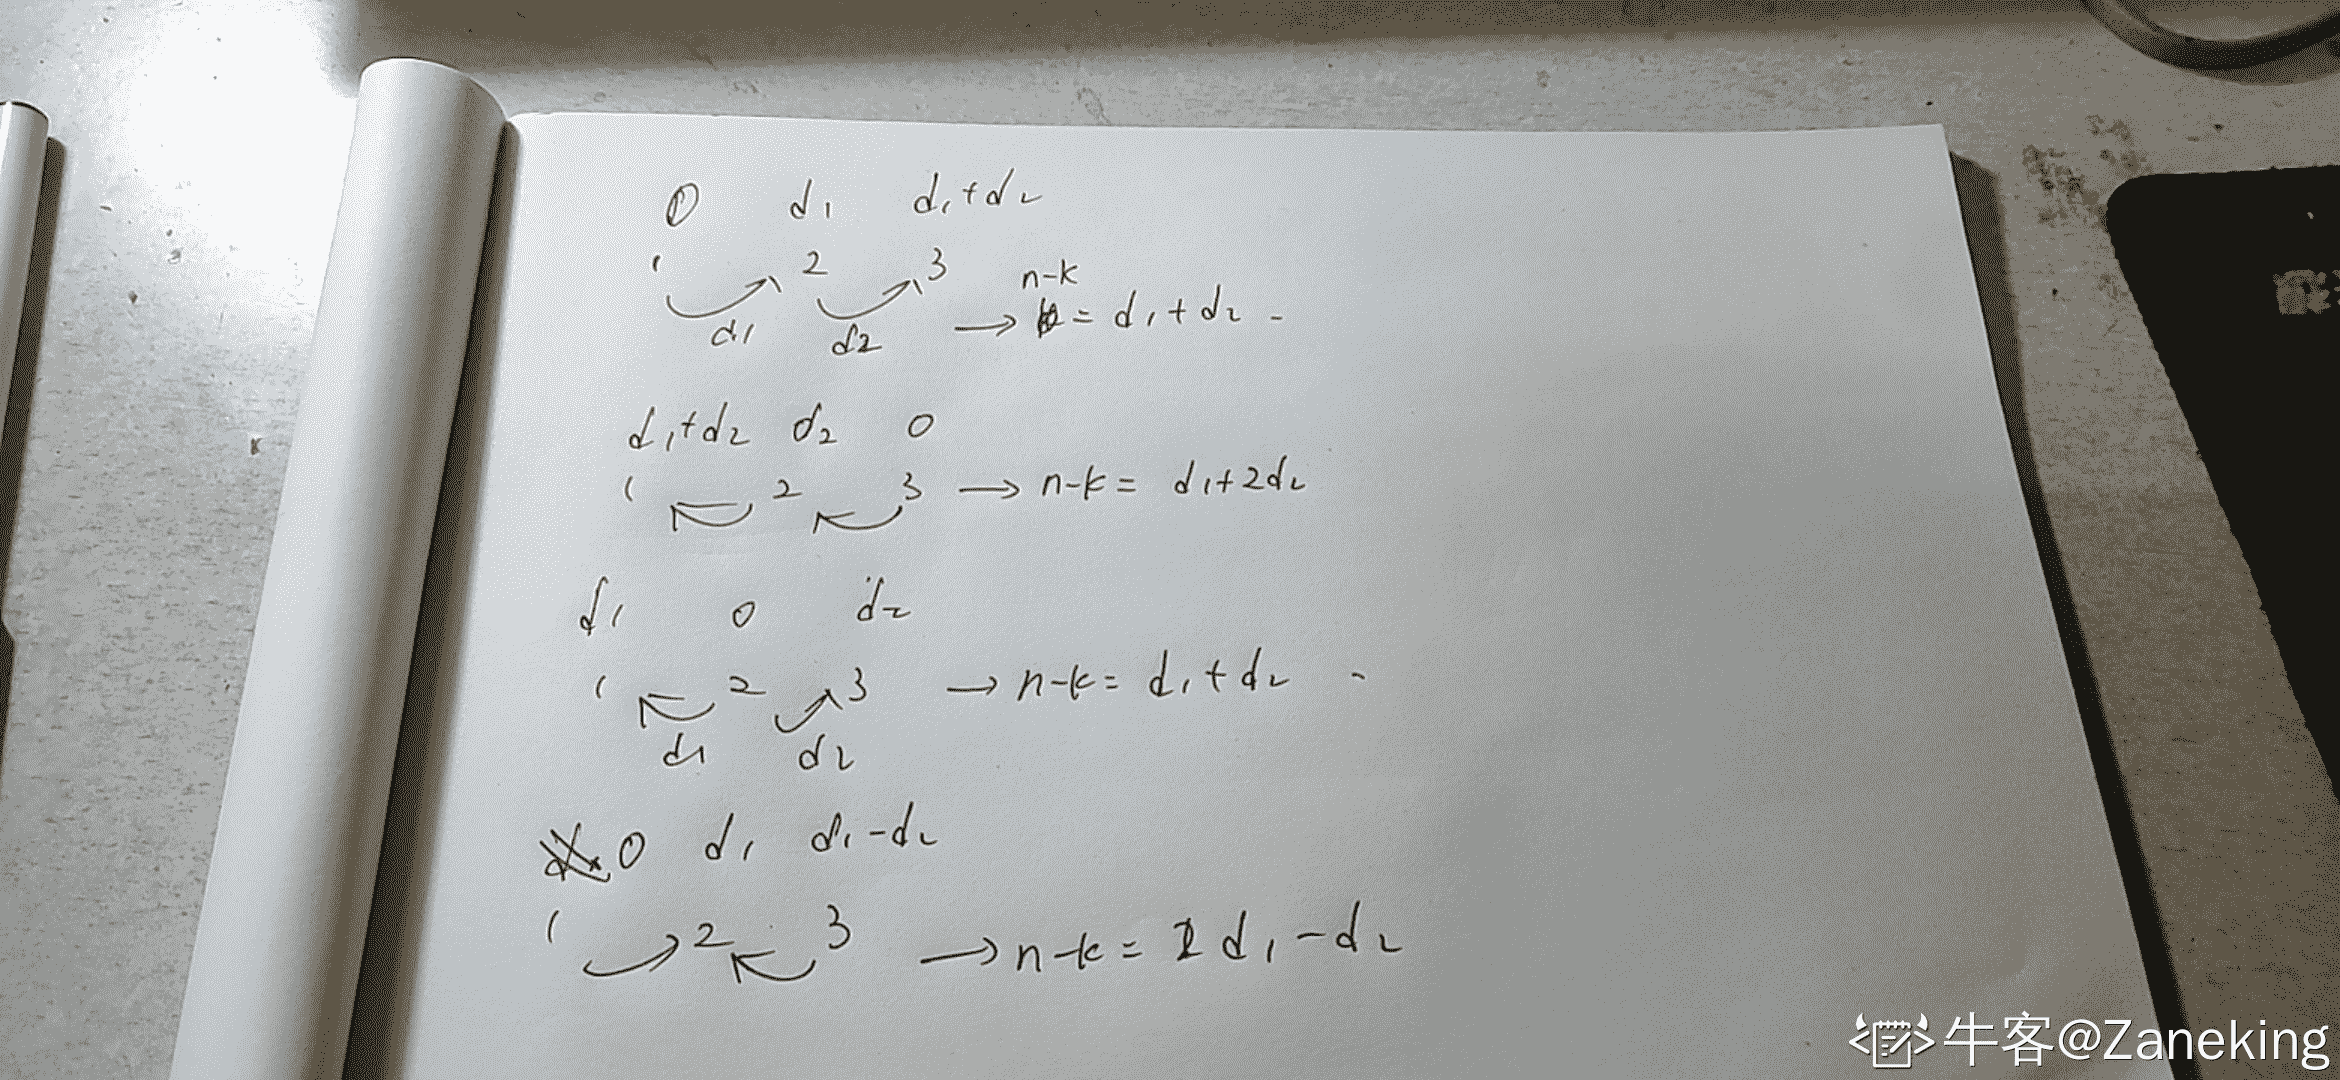 0 d1 d1+d2
1 2 3
n-k
d1 d2 → = d1+d2 -
d1+d2 d2 0
1 2 3 → n-k = d1+2d2
d1 0 d2
1 2 3 → n-k = d1+d2 -
d1 d2
0 d1 d1-d2
1 2 3 → n-k = 2d1-d2
牛客@Zaneking